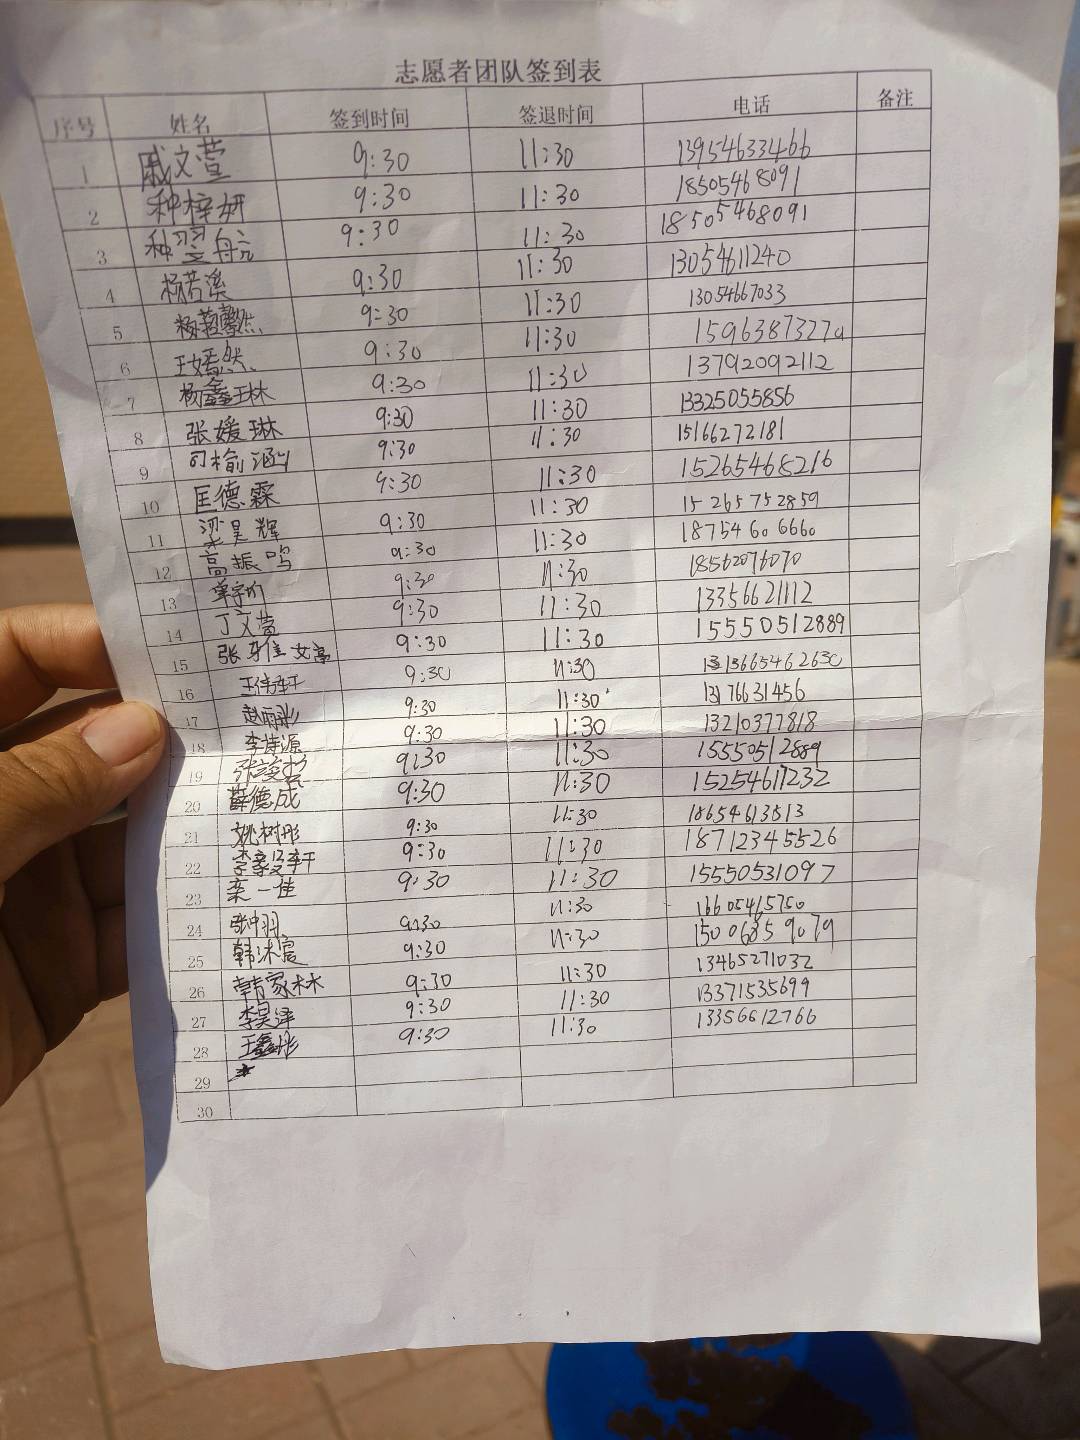 志愿者团队签到表
序号 姓名 签到时间 签退时间 电话 备注
1 戚文萱 9:30 11:30 13954633466
2 种梓妍 9:30 11:30 18505468091
3 种翌舟亢 9:30 11:30 18505468091
4 杨若溪 9:30 11:30 13054611240
5 杨 9:30 11:30 13054667033
6 王嫣然 9:30 11:30 1596387327
7 杨鑫琳 9:30 11:30 13792092112
8 张媛琳 9:30 11:30 13325055856
9 司榆涵 9:30 11:30 15166272181
10 匡德霖 9:30 11:30 15265468216
11 梁昊辉 9:30 11:30 15265752859
12 高振鸣 9:30 11:30 18754606660
13 9:30 11:30 18562076070
14 丁文萱 9:30 11:30 13356621112
15 张 9:30 11:30 15550512889
16 王伟轩 9:30 11:30 13665462630
17 赵雨彤 9:30 11:30 13176631456
18 李诗源 9:30 11:30 13210377818
19 张 9:30 11:30 15550512889
20 薛德成 9:30 11:30 15254617232
21 姚树彤 9:30 11:30 18654613513
22 李 轩 9:30 11:30 18712345526
23 栾一佳 9:30 11:30 15550531097
24 张中羽 9:30 11:30 16605465750
25 韩沐宸 9:30 11:30 15006859079
26 韩家林 9:30 11:30 13465271032
27 李昊泽 9:30 11:30 13371535699
28 王鑫彤 9:30 11:30 13356612766
29
30